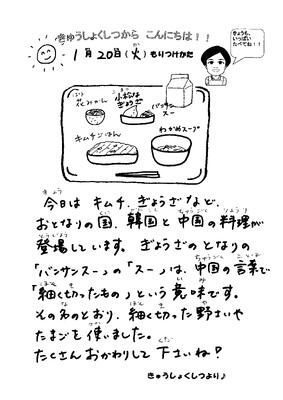 きゅうしょくしつから こんにちは!!
1月20日(火)もりつけかた
きょうも、
いっぱい
たべてね!!
花みかん
小松な
ぎょうざ
バンサン
スー
キムチごはん
わかめスープ
今日は キムチ、ぎょうざなど、
おとなりの国、韓国と中国の料理が
登場しています。ぎょうざのとなりの
「バンサンスー」の「スー」は、中国の言葉で
「細く切ったもの」という意味です。
その名のとおり、細く切った野さいや
たまごを使いました。
たくさんおかわりして下さいね?
きゅうしょくしつより♪